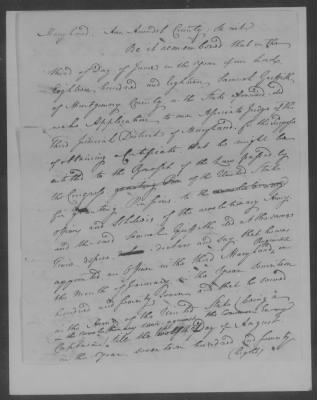 Maryland, Ann Arundel County, to wit
Be it remembered that on the
third of Day of June in the year of our Lord
Eighteen hundred and eighteen Samuel Griffith
of Montgomery County in the State aforesaid
make Application to me Associate Judge of the
Third Judicial District of Maryland, for the purpose
of obtaining Certificate that he might be
entitled to the of the Law passed by
the Congress of the United State
for Pensions to the
officers and Soldiers of the revolutionary Army
and the said Samuel Griffith did at the same
Time depose declare and say that he was
appointed an Officer in the Third Maryland Regiment in
the Month of in the Year Seventeen
hundred and seventy Seven and that he served
in the Army of the United State (being a
in the revolutionary war against the Common Enemy
Captain) till the twelfth Day of August
in the year seventeen hundred and seventy
(Eight)